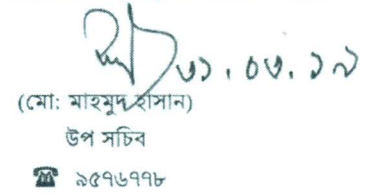 ৩১.০৩.১৯
(মো: মাহমুদ হাসান)
উপ সচিব
☎ ৯৫৭৬৭৭৮